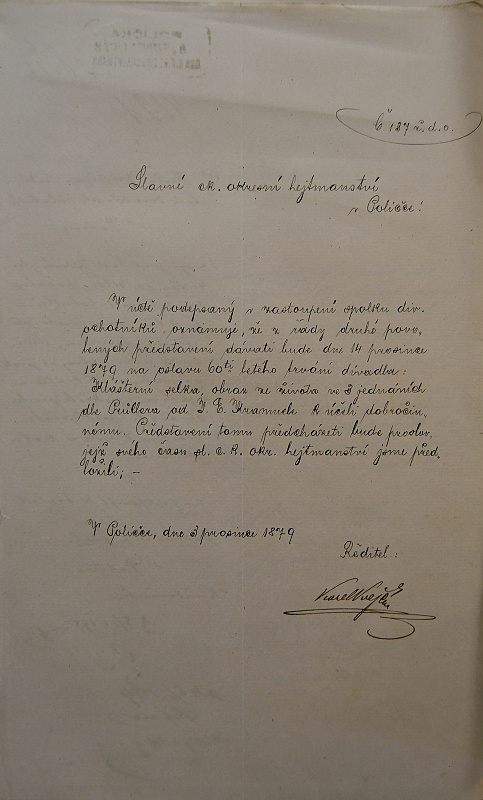 Č 127 z. d. o.
Slavné ck. okresní hejtmanství
v Poličce!
V úctě podepsaný v zastoupení spolku div.
ochotníků oznamuje, že z řady druhé povo,
lených představení dávati bude dne 14 prosince
1879 na oslavu 60ti letého trvání divadla:
Klášterní selka, obraz ze života ve 3 jednáních
dle Prüllera od J. E. Kramuele k účeli dobročin,
nému. Představení tomu předcházeti bude proslov,
jejž svého času sl. c. k. okr. hejtmanství jsme před,
ložili; –
V Poličce, dne 3 prosince 1879
Ředitel:
Karel